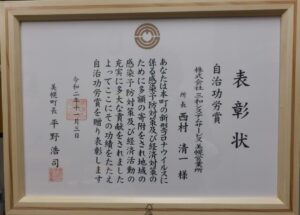 表彰状
自治功労賞
株式会社 三和システムサービス 美幌営業所
所長 西村 清一 様
あなたは本町の新型コロナウイルスに
係る感染予防対策及び経済対策の
ために多額の寄附をされ地域の
感染予防対策及び経済活動の
充実に多大な貢献をされました
よってここにその功績をたたえ
自治功労賞を贈り表彰します
令和二年十一月三日
美幌町長 平野浩司